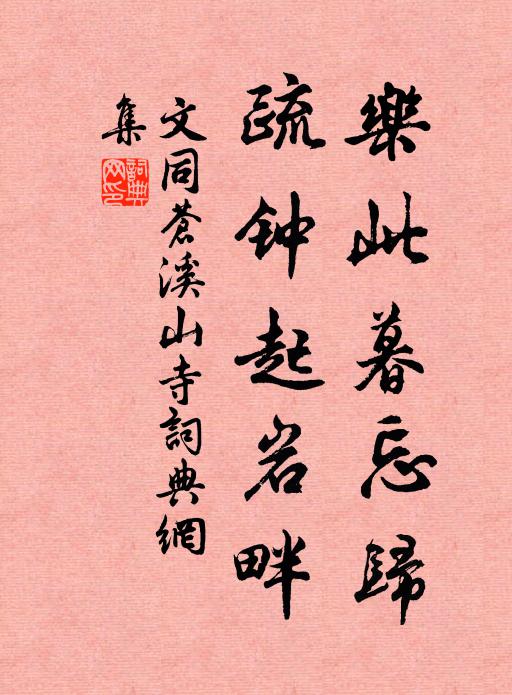 樂此暮忘歸
疏钟起岩畔
文同蒼溪山寺詞典網
集
詞典網印